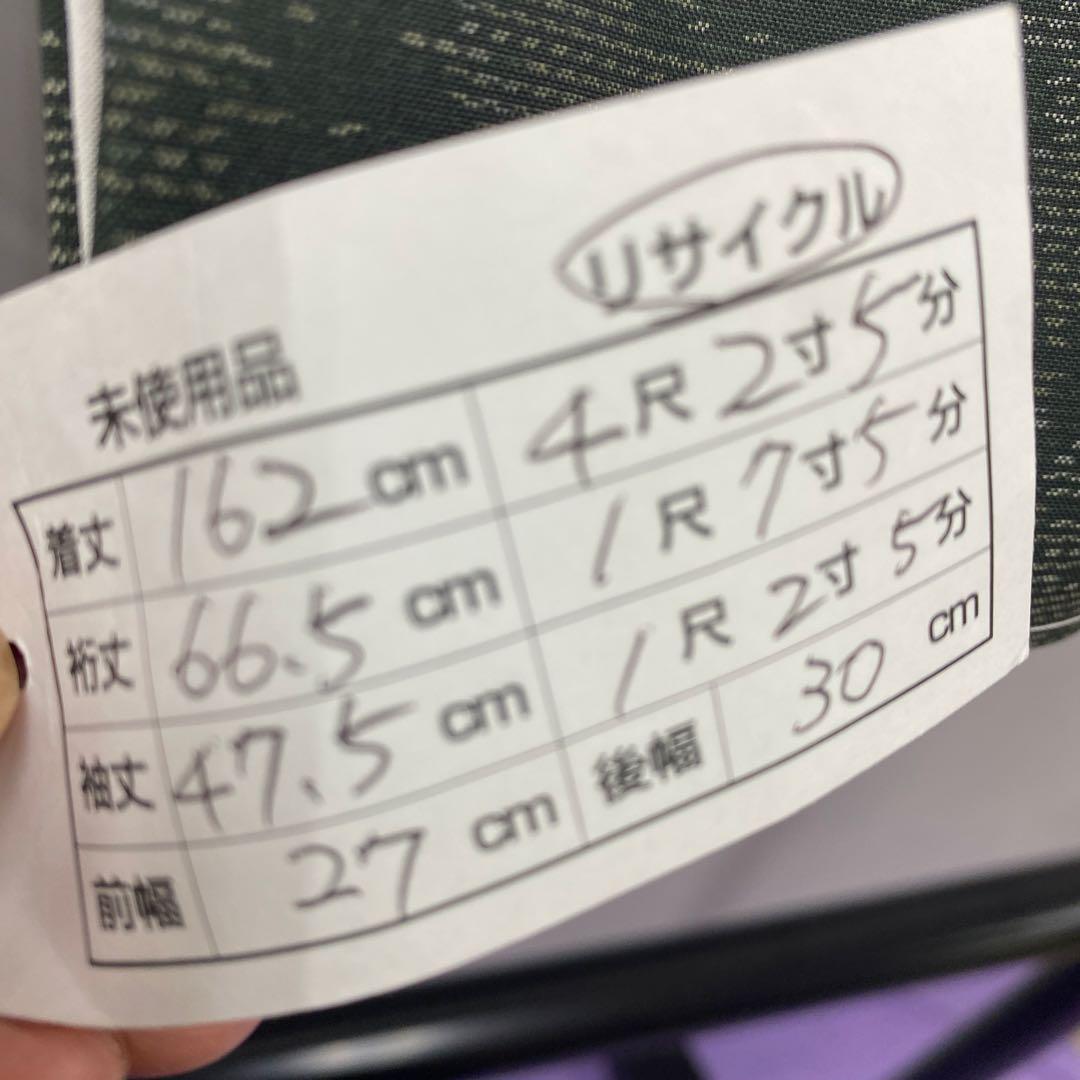 未使用品 リサイクル
着丈 162 cm 4尺2寸5分
裄丈 66.5 cm 1尺7寸5分
袖丈 47.5 cm 1尺2寸5分
前幅 27 cm 後幅 30 cm